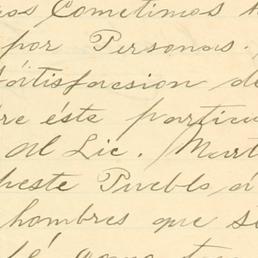 Cometimos
por Personas.
satisfacsion de
re éste particu
Al Lic. Mart
heste Pueblo á
hombres que s